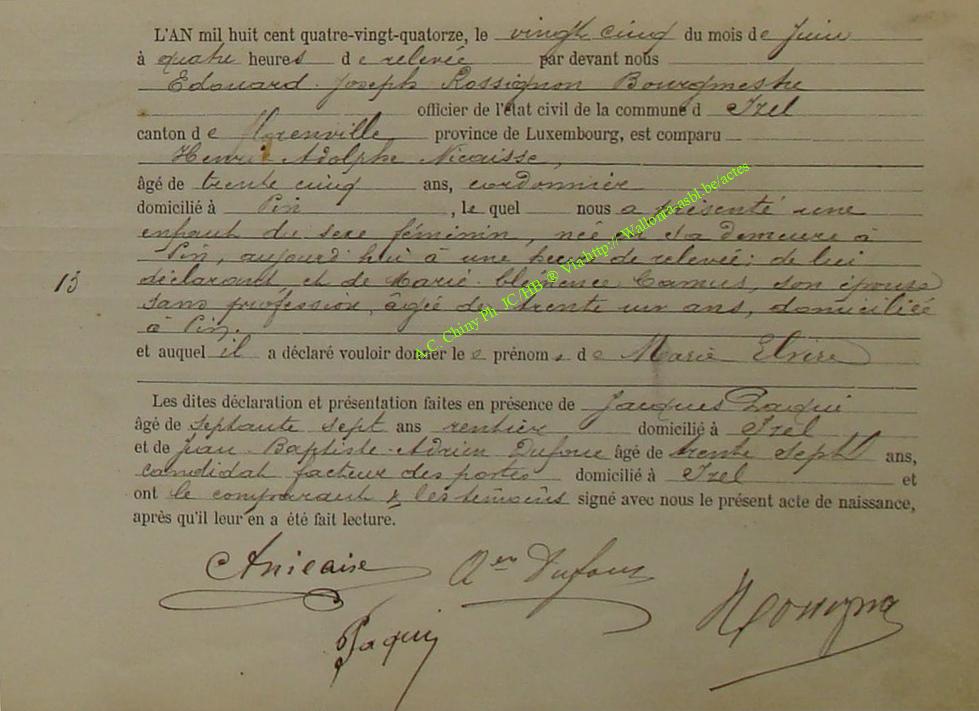 L'AN mil huit cent quatre-vingt-quatorze, le vingt cinq du mois de Juin
à quatre heures de relevée par devant nous
Edouard Joseph Rossignon Bourgmestre
officier de l'état civil de la commune d Izel
canton de Florenville province de Luxembourg, est comparu
Henri Adolphe Nicaisse,
âgé de trente cinq ans, cordonnier
domicilié à Pin, le quel nous a présenté une
enfant du sexe féminin, née en sa demeure à
Pin, aujourd'hui à une heure de relevée: de lui
13 déclarant, et de Marie Clémence Camus, son épouse
sans profession, âgée de trente un ans, domiciliée
à Pin.
et auquel il a déclaré vouloir donner les prénoms de Marie Elvire
Les dites déclaration et présentation faites en présence de Jacques Paqui
âgé de septante sept ans rentier domicilié à Izel
et de Jean Baptiste Adrien Dufour âgé de trente sept ans,
candidat facteur des postes domicilié à Izel et
ont le comparant & les témoins signé avec nous le présent acte de naissance,
après qu'il leur en a été fait lecture.
A Nicaise Aen Dufour
Paqui
A.C. Chiny Ph JC/HB ® Via http://Wallonia-asbl.be/actes